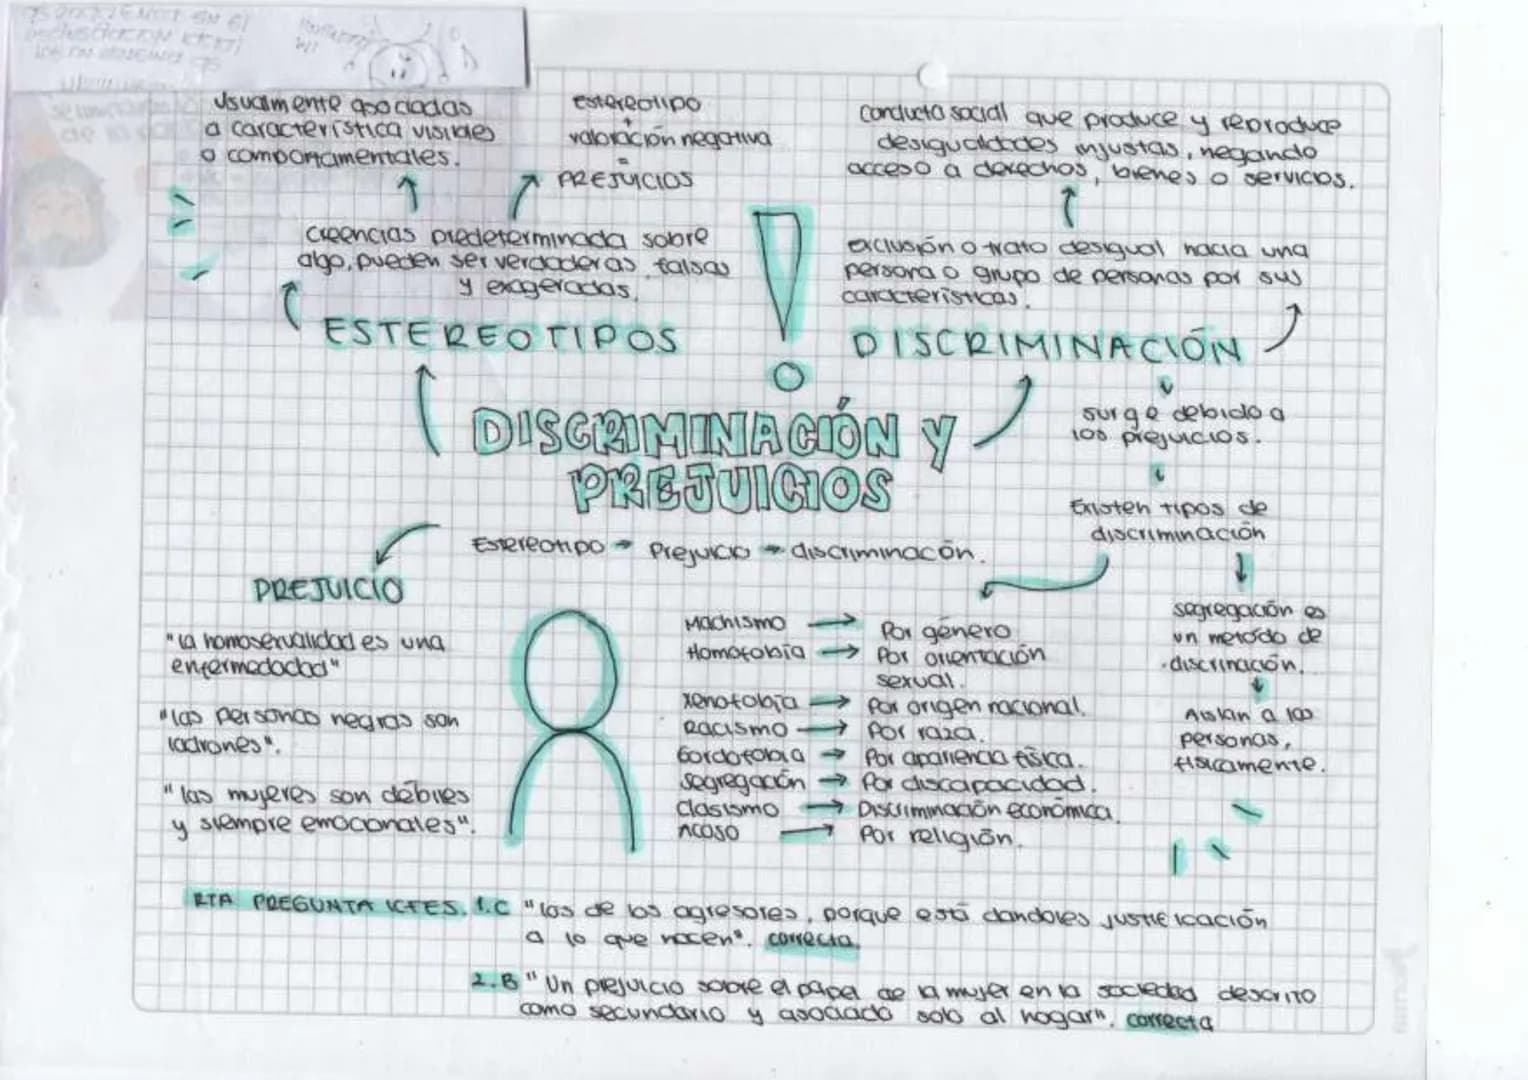 usualmente asociadas
a característica visibles
o comportamentales.
estereotipo
+
valoración negativa
=
PREJUICIOS
conducta social que produce y reproduce
desigualdades injustas, negando
acceso a derechos, bienes o servicios.
creencias predeterminada sobre
algo, pueden ser verdaderas, falsas
y exageradas.
exclusión o trato desigual hacia una
persona o grupo de personas por sus
características.
ESTEREOTIPOS
DISCRIMINACIÓN
surge debido a
los prejuicios.
DISCRIMINACIÓN Y
PREJUICIOS
Existen tipos de
discriminación
Estereotipo → Prejuicio → discriminación.
PREJUICIO
"la homosexualidad es una
enfermedad"
"las personas negras son
ladrones".
"las mujeres son débiles
y siempre emocionales".
Machismo → Por género
Homofobia → Por orientación
sexual.
Xenofobia → Por origen nacional.
Racismo → Por raza.
Gordofobia → Por apariencia física.
Segregación → Por discapacidad.
Clasismo → Discriminación económica.
Acoso → Por religión.
segregación es
un metódo de
discrinación.
Aislan a las
personas,
físicamente.
RTA PREGUNTA ICFES. 1.C "las de los agresores, porque está dandoles justificación
a lo que hacen". correcta.
2.B "Un prejuicio sobre el papel de la mujer en la sociedad descrito
como secundario y asociado solo al hogar". correcta